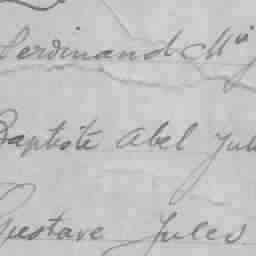 Ferdinand M
Baptiste Abel Jul
Gustave Jules